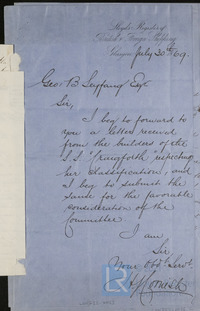 Lloyd's Register of
British & Foreign Shipping
Glasgow July 20th /69
Geo. B. Seyfang Esqre
Sir,
I beg to forward to
you a letter received
from the builders of the
S.S. respecting
her classification, and
I beg to submit the
same for the favorable
consideration of the
Committee.
I am
Sir,
Your Obdt. Servt.